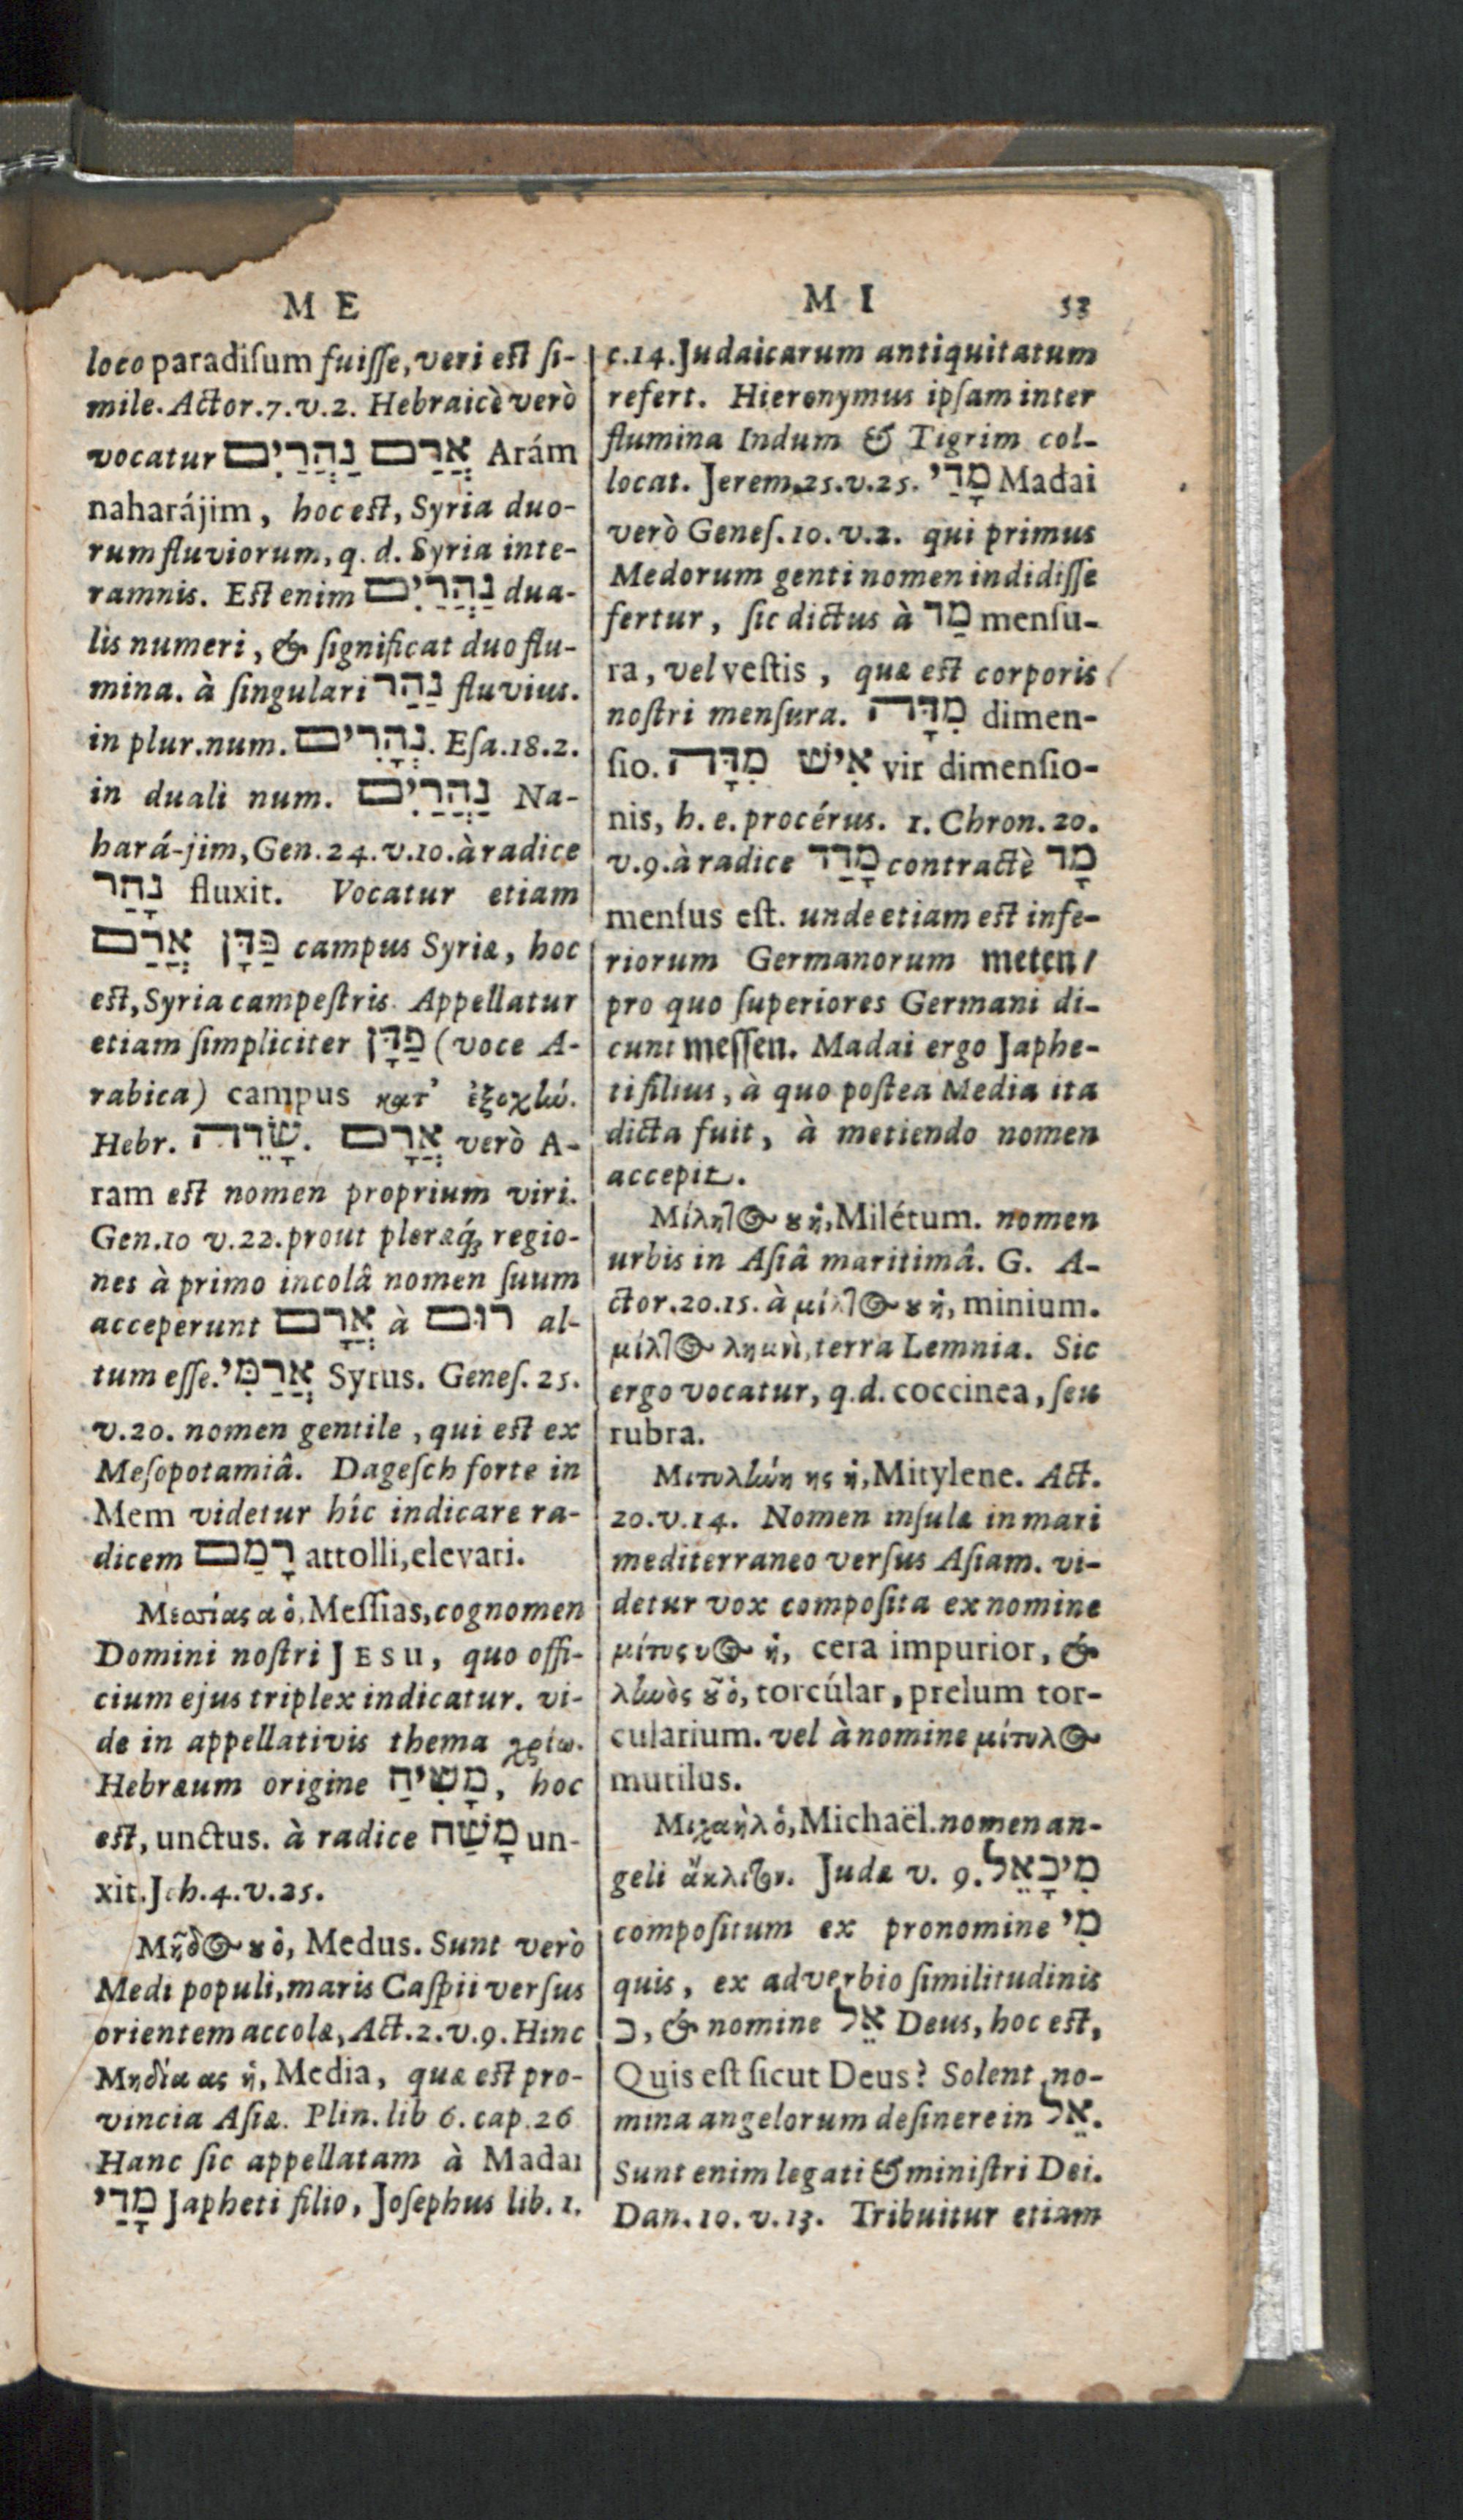 M E
loco paradiſum fuiſſe, veri eſt ſi-
mile. Actor.7.v.2. Hebraicè verò
vocatur אֲרַם נַהֲרַיִם Arám
naharájim, hoc eſt, Syria duo-
rum fluviorum, q. d. Syria inte-
ramnis. Eſt enim נַהֲרַיִם dua-
lis numeri, & ſignificat duo flu-
mina. à ſingulari נַהַר fluvius.
in plur.num. נְהָרִים. Eſa.18.2.
in duali num. נַהֲרַיִם Na-
hará-jim, Gen.24.v.10. à radice
נָהַר fluxit. Vocatur etiam
פַּדַּן אֲרַם campus Syriæ, hoc
eſt, Syria campeſtris. Appellatur
etiam ſimpliciter פַּדָּן (voce A-
rabica) campus κατ' ἐξοχὴν.
Hebr. שָׂדֶה. אֲרָם verò A-
ram eſt nomen proprium viri.
Gen.10 v.22. prout pleræq; regio-
nes à primo incolâ nomen ſuum
acceperunt אֲרָם à רוּם al-
tum eſſe. אֲרַמִּי Syrus. Geneſ. 25.
v.20. nomen gentile, qui eſt ex
Meſopotamiâ. Dageſch forte in
Mem videtur hîc indicare ra-
dicem רָמַם attolli, elevari.
Μεσσίας α ὁ, Meſſias, cognomen
Domini noſtri JESU, quo offi-
cium ejus triplex indicatur. vi-
de in appellativis thema χρίω.
Hebræum origine מָשִׁיחַ, hoc
eſt, unctus. à radice מָשַׁח un-
xit. Joh.4.v.25.
Μῆδος ου ὁ, Medus. Sunt verò
Medi populi, maris Caſpii verſus
orientem accolæ, Act.2.v.9. Hinc
Μηδία ας ἡ, Media, quæ eſt pro-
vincia Aſiæ. Plin. lib 6. cap.26
Hanc ſic appellatam à Madai
מָדַי Japheti filio, Joſephus lib. 1.
M I 53
c.14. Judaicarum antiquitatum
refert. Hieronymus ipſam inter
flumina Indum & Tigrim col-
locat. Jerem.25.v.25. מָדַי Madai
verò Geneſ.10.v.2. qui primus
Medorum genti nomen indidiſſe
fertur, ſic dictus à מַד menſu-
ra, vel veſtis, quæ eſt corporis
noſtri menſura. מִדָּה dimen-
ſio. אִישׁ מִדָּה vir dimenſio-
nis, h. e. procérus. 1. Chron. 20.
v.9. à radice מָדַד contractè מָד
menſus eſt. unde etiam eſt infe-
riorum Germanorum meten/
pro quo ſuperiores Germani di-
cunt meſſen. Madai ergo Japhe-
ti filius, à quo poſtea Media ita
dicta fuit, à metiendo nomen
accepit.
Μίλητος ου ἡ, Milétum. nomen
urbis in Aſiâ maritimâ. G. A-
ctor.20.15. à μίλτος ου ἡ, minium.
μίλτος λημνὶ, terra Lemnia. Sic
ergo vocatur, q.d. coccinea, ſeu
rubra.
Μιτυλήνη ης ἡ, Mitylene. Act.
20.v.14. Nomen inſulæ in mari
mediterraneo verſus Aſiam. vi-
detur vox compoſita ex nomine
μίτυς υος ἡ, cera impurior, &
ληνὸς οῦ ὁ, torcúlar, prelum tor-
cularium. vel à nomine μίτυλος
mutilus.
Μιχαὴλ ὁ, Michaël. nomen an-
geli ἄκλιτον. Judæ v. 9. מִיכָאֵל
compoſitum ex pronomine מִי
quis, ex adverbio ſimilitudinis
כ, & nomine אֵל Deus, hoc eſt,
Quis eſt ſicut Deus? Solent no-
mina angelorum deſinere in אֵל.
Sunt enim legati & miniſtri Dei.
Dan.10.v.13. Tribuitur etiam